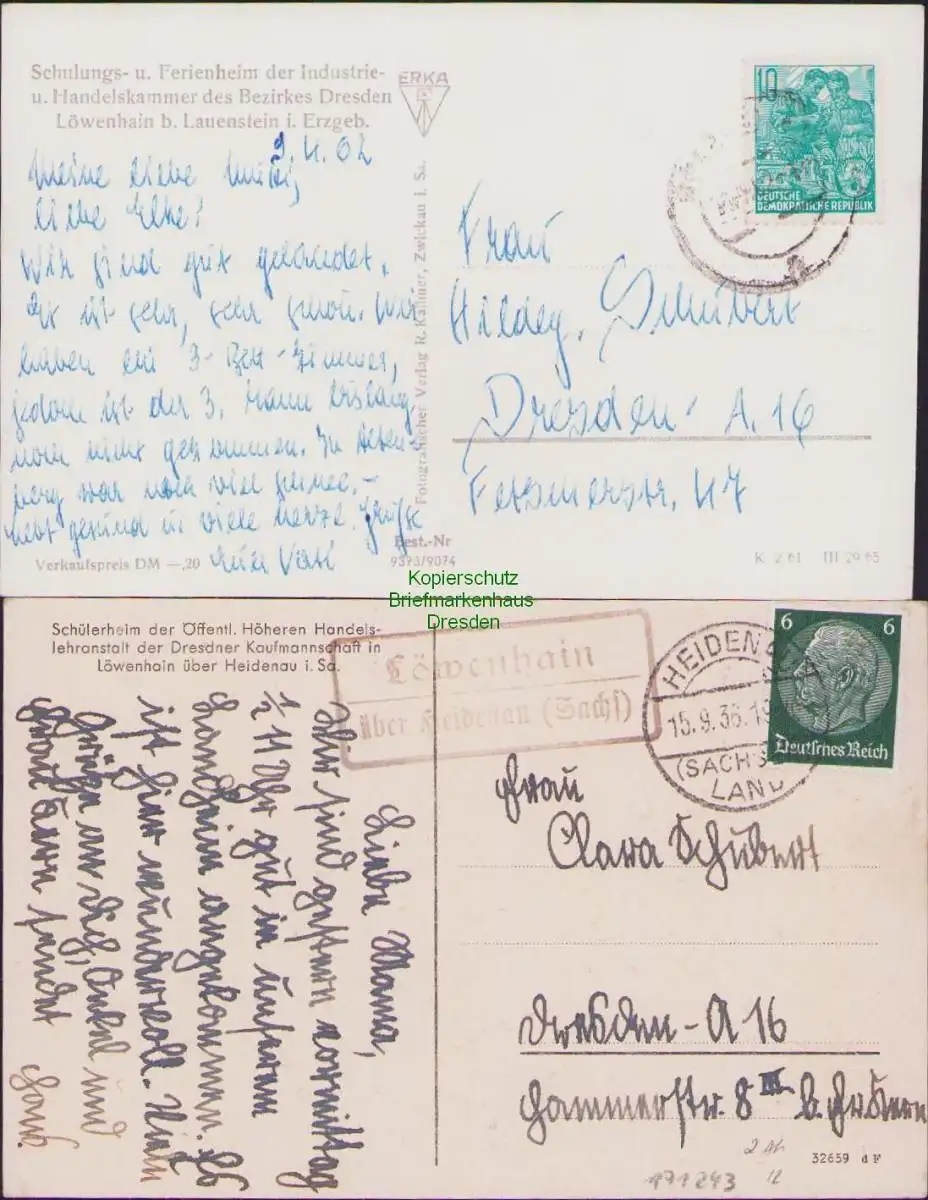 Schulungs- u. Ferienheim der Industrie-
u. Handelskammer des Bezirkes Dresden
Löwenhain b. Lauenstein i. Erzgeb.
ERKA
9.4.62
Meine liebe Mutti,
liebe Elke!
Wir sind gut gelandet.
Es ist sehr, sehr schön. Wir
haben ein 3-Bett-Zimmer,
jedoch ist der 3. Mann bislang
noch nicht gekommen. In Alten-
berg war noch viel Schnee. –
Lebt gesund u. viele herzl. Grüße
Euer Vati
Verkaufspreis DM —,20
Fotografischer Verlag R. Kallmer, Zwickau i. Sa.
Best.-Nr
9373/9074
10
DEUTSCHE
DEMOKRATISCHE REPUBLIK
Frau
Hildeg. Schubert
Dresden A.16
Fetscherstr. 47
K 2 61 III 29 65
Kopierschutz
Briefmarkenhaus
Dresden
Schülerheim der Öffentl. Höheren Handels-
lehranstalt der Dresdner Kaufmannschaft in
Löwenhain über Heidenau i. Sa.
Löwenhain
über Heidenau (Sachs)
HEIDENAU
15.9.36.19
(SACHS
LAND
6 6
Deutsches Reich
Liebe Mama,
Wir sind gestern vormittag
½ 11 Uhr gut in unserem
Landheim angekommen. Es
ist hier wundervoll. Viele
Grüße an Dich, Onkel und
Frau Kern sendet
Hans.
Frau
Clara Schubert
Dresden-A 16
Hammerstr. 8 III b. Fr. Kern
32659 d F
171243